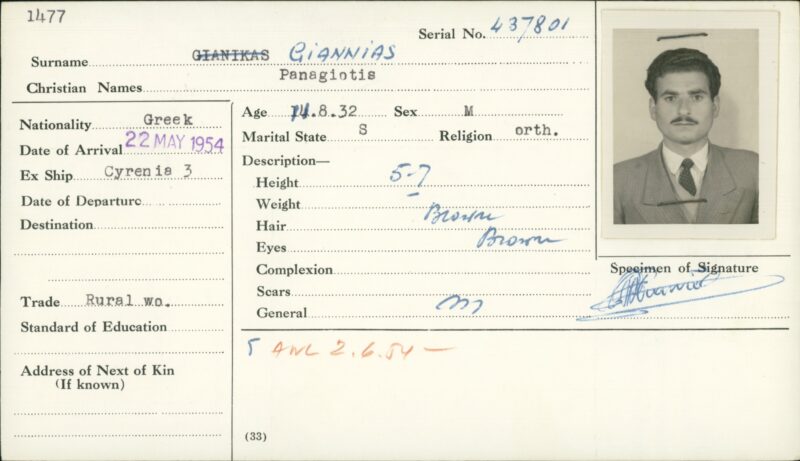 1477
Serial No. 437801
Surname GIANIKAS GIANNIAS
Christian Names Panagiotis
Nationality Greek
Date of Arrival 22 MAY 1954
Ex Ship Cyrenia 3
Date of Departure
Destination
Trade Rural wo.
Standard of Education
Address of Next of Kin
(If known)
Age .8.32 Sex M
Marital State S Religion orth.
Description—
Height 5-7
Weight –
Hair Brown
Eyes Brown
Complexion
Scars
General m
Specimen of Signature
5 2.6.54 —
(33)